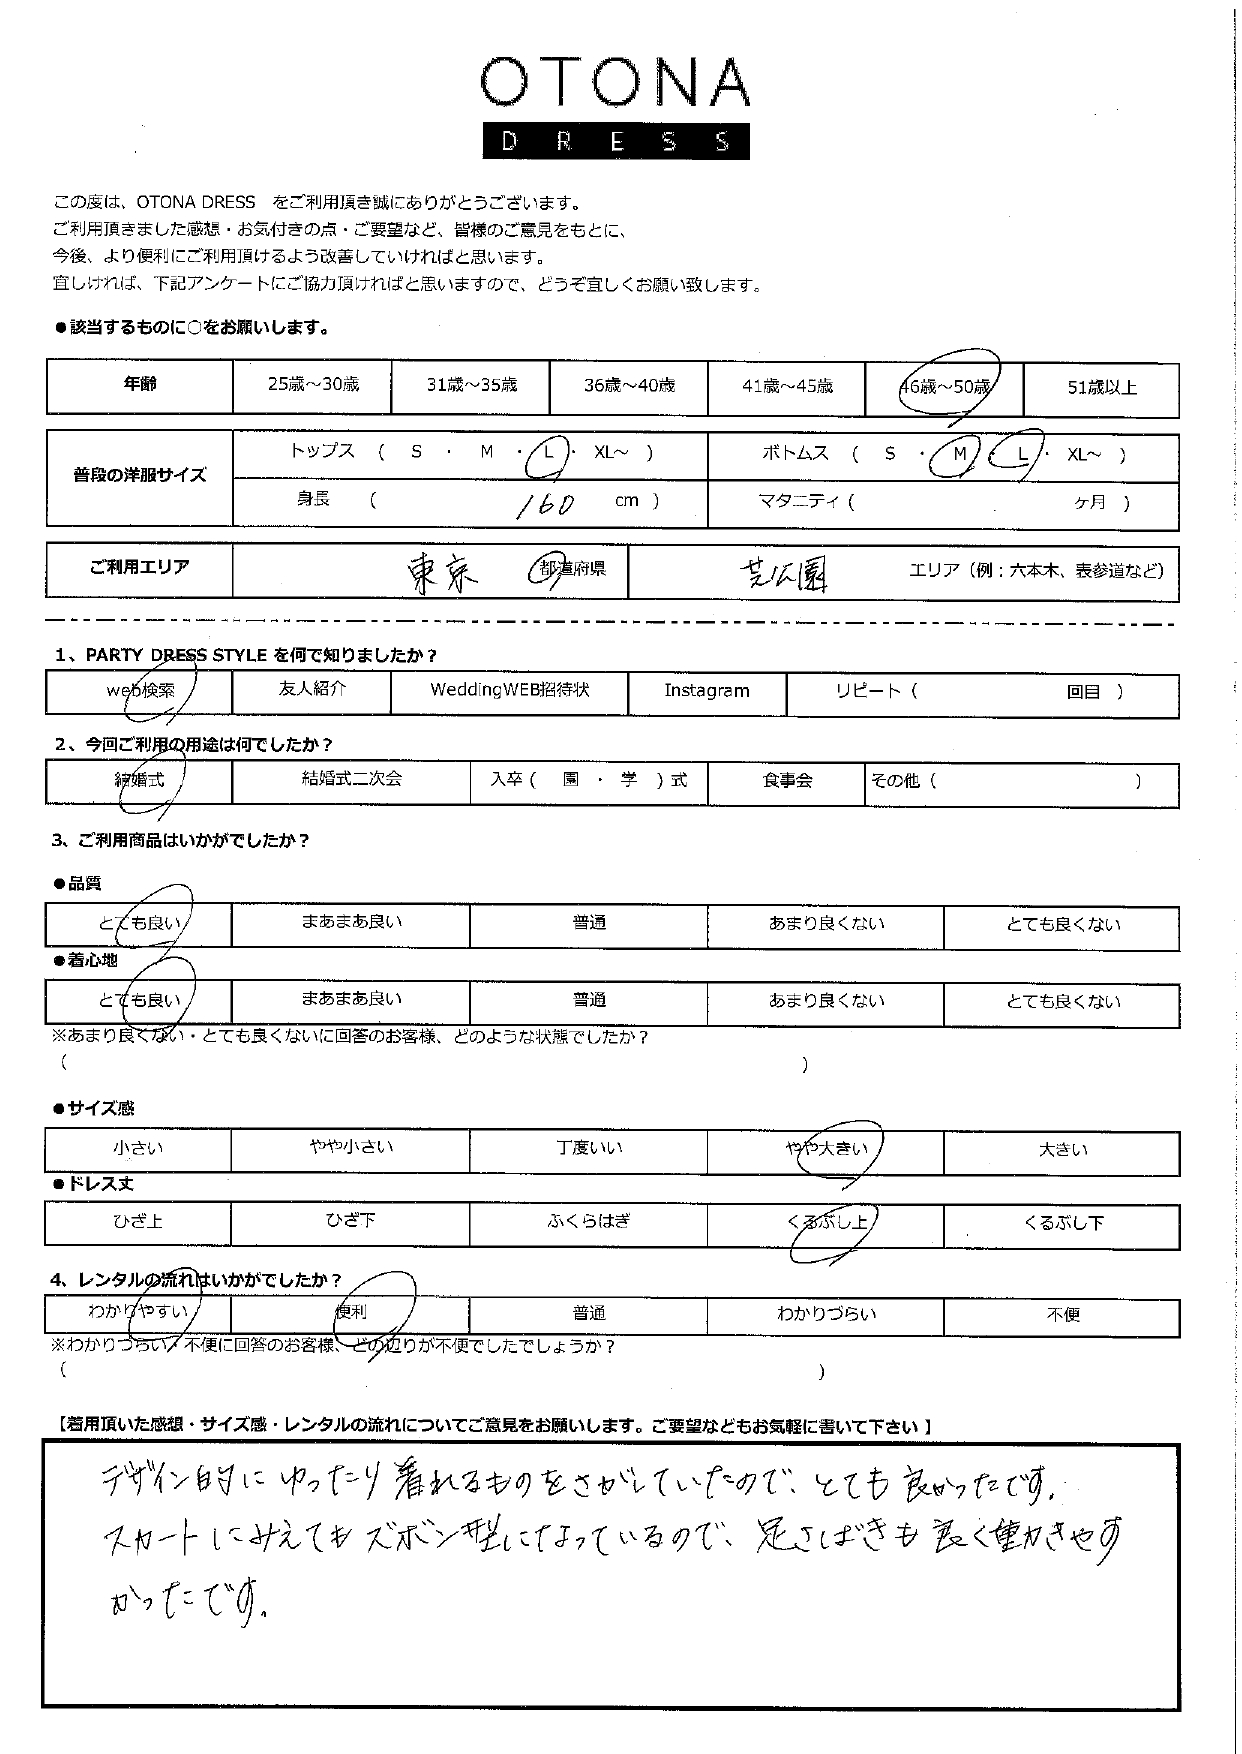 OTONA
DRESS
この度は、OTONA DRESS　をご利用頂き誠にありがとうございます。
ご利用頂きました感想・お気付きの点・ご要望など、皆様のご意見をもとに、
今後、より便利にご利用頂けるよう改善していければと思います。
宜しければ、下記アンケートにご協力頂ければと思いますので、どうぞ宜しくお願い致します。
●該当するものに○をお願いします。
年齢 25歳～30歳 31歳～35歳 36歳～40歳 41歳～45歳 46歳～50歳 51歳以上
普段の洋服サイズ
トップス （ S ・ M ・ L ・ XL～ ） ボトムス （ S ・ M ・ L ・ XL～ ）
身長 （ 160 cm ） マタニティ（ ヶ月 ）
ご利用エリア 東京 都道府県 芝公園 エリア（例：六本木、表参道など）
1、PARTY DRESS STYLE を何で知りましたか？
web検索 友人紹介 WeddingWEB招待状 Instagram リピート（ 回目 ）
2、今回ご利用の用途は何でしたか？
結婚式 結婚式二次会 入卒（ 園 ・ 学 ）式 食事会 その他（ ）
3、ご利用商品はいかがでしたか？
●品質
とても良い まあまあ良い 普通 あまり良くない とても良くない
●着心地
とても良い まあまあ良い 普通 あまり良くない とても良くない
※あまり良くない・とても良くないに回答のお客様、どのような状態でしたか？
（ ）
●サイズ感
小さい やや小さい 丁度いい やや大きい 大きい
●ドレス丈
ひざ上 ひざ下 ふくらはぎ くるぶし上 くるぶし下
4、レンタルの流れはいかがでしたか？
わかりやすい 便利 普通 わかりづらい 不便
※わかりづらい・不便に回答のお客様、どの辺りが不便でしたでしょうか？
（ ）
【着用頂いた感想・サイズ感・レンタルの流れについてご意見をお願いします。ご要望などもお気軽に書いて下さい 】
デザイン的に ゆったり着れるものをさがしていたので、とても良かったです。
スカートにみえてもズボン型になっているので、足さばきも良く動きやす
かったです。